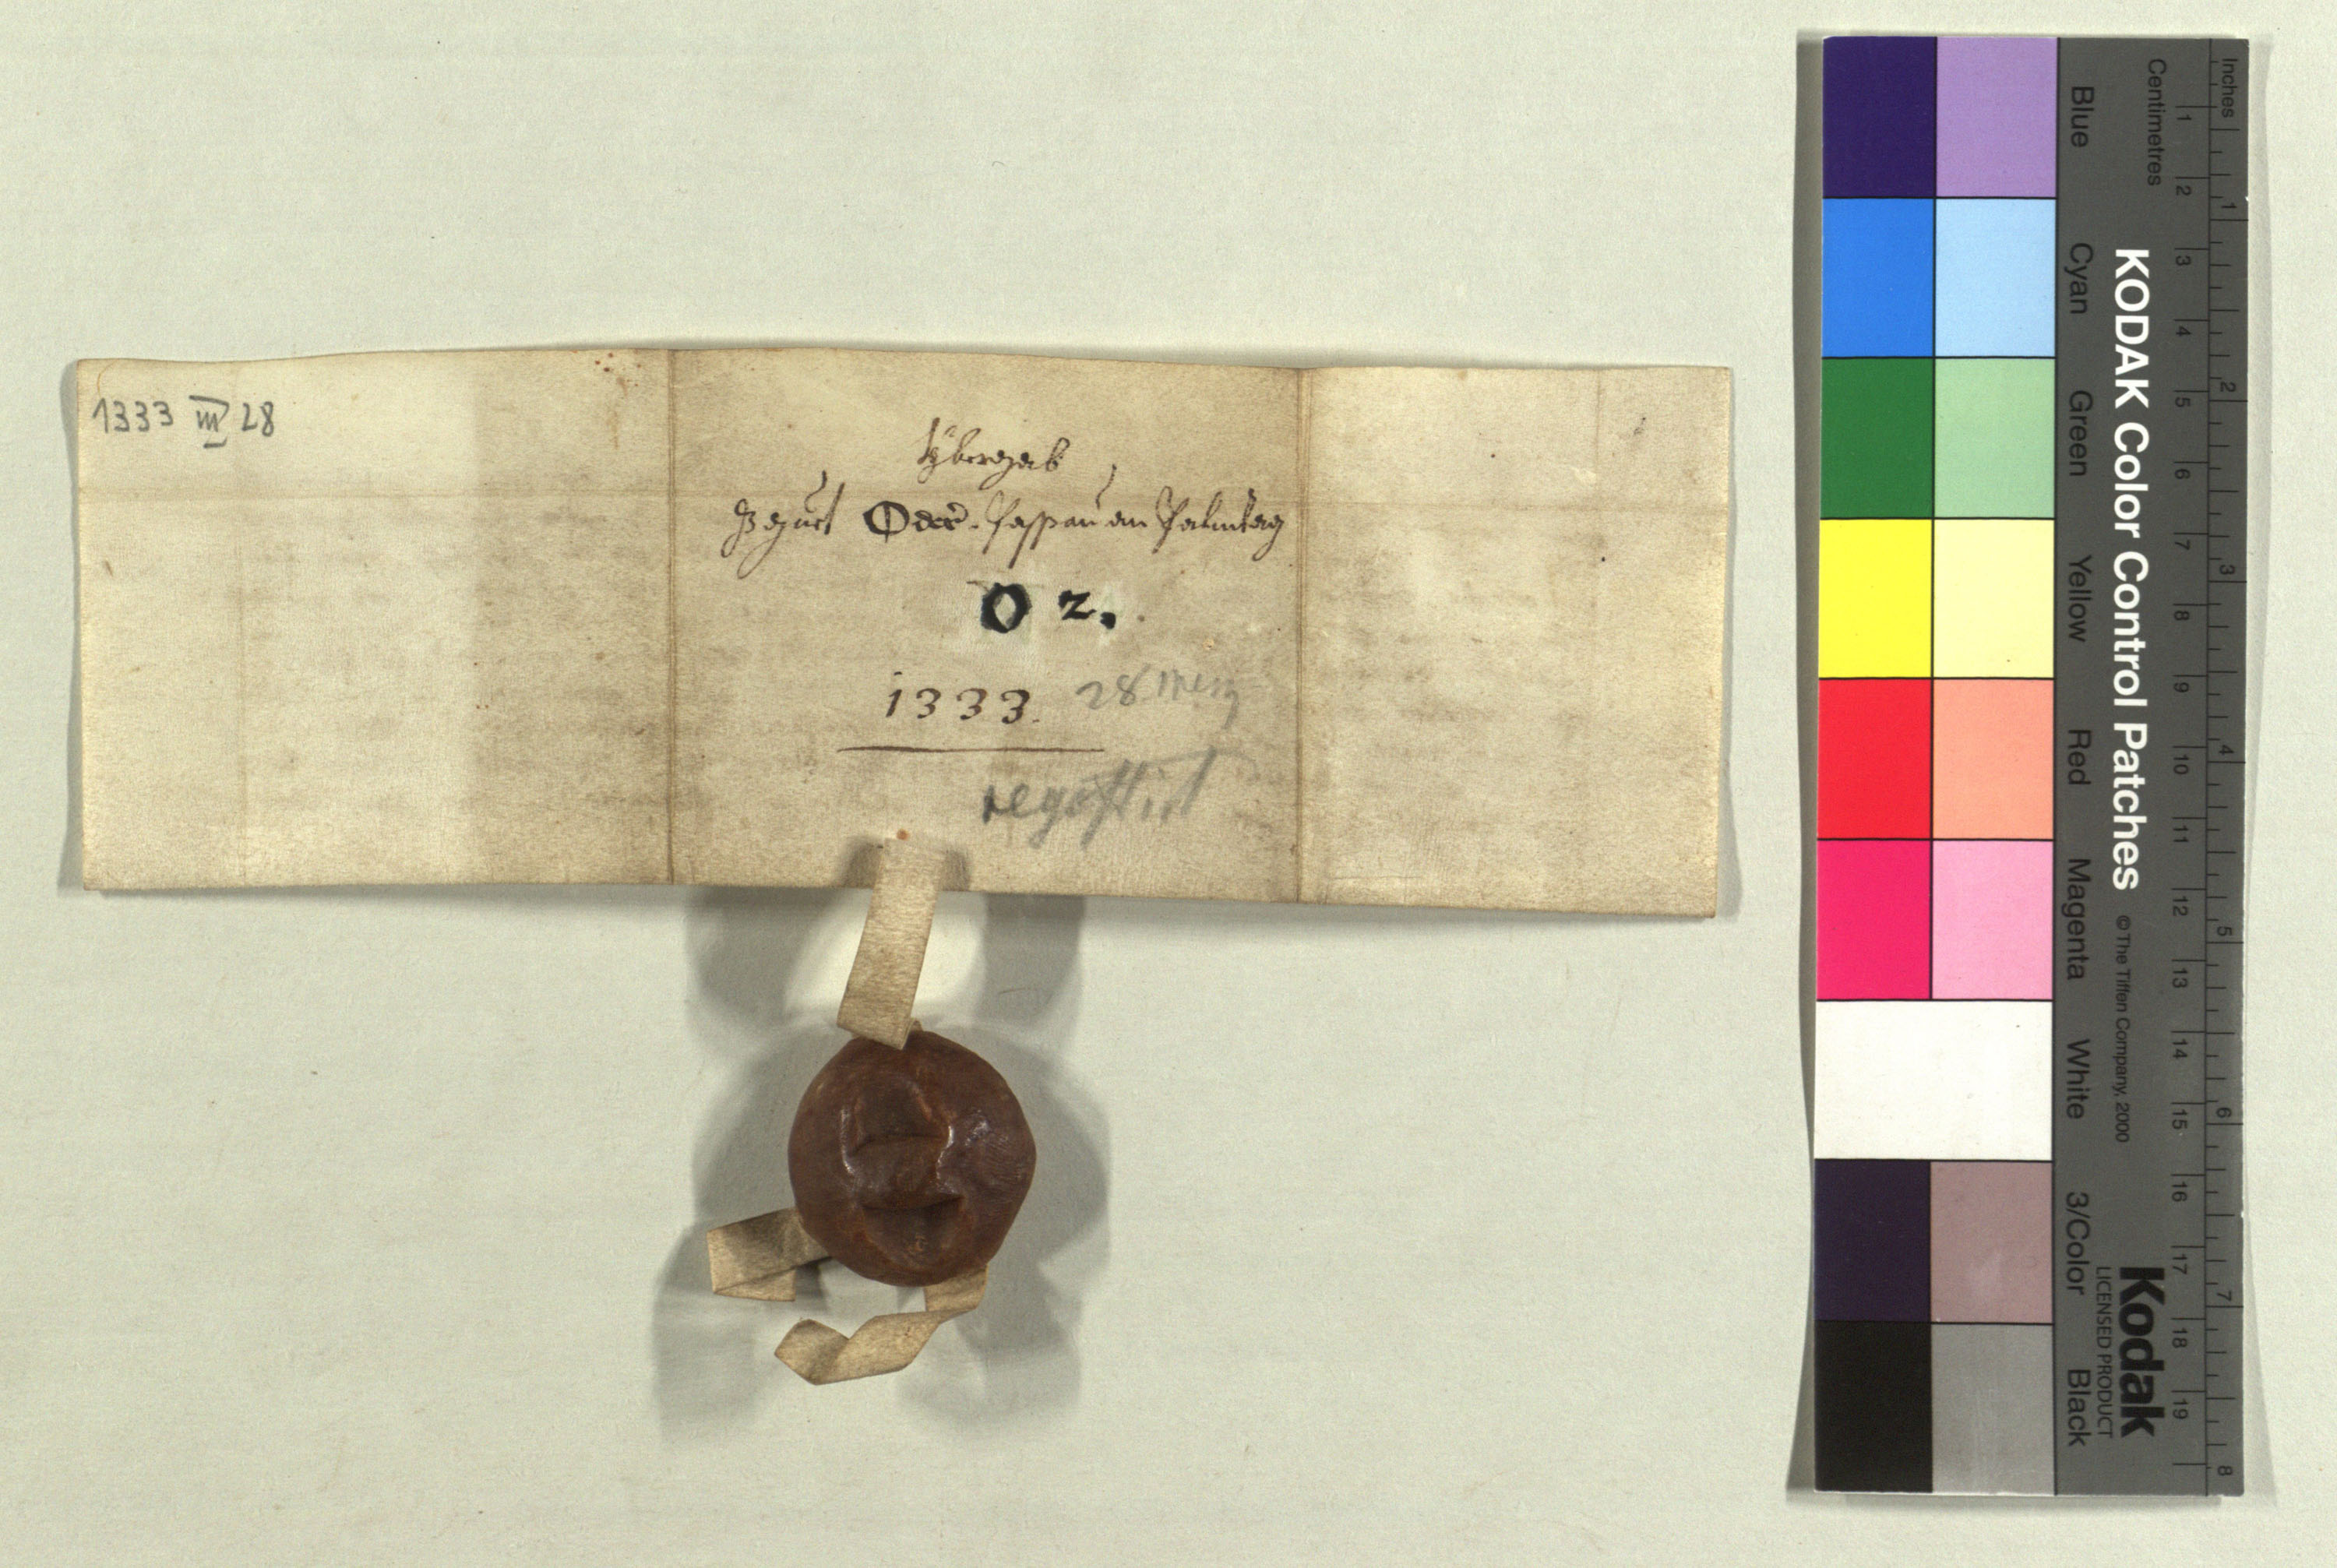 1333 III 28
Übergab
Oder Passau am Palmtag
O 2.
1333. 28 Merz
regestirt
Inches
Centimetres
KODAK Color Control Patches © The Tiffen Company, 2000
Kodak
LICENSED PRODUCT
Blue Cyan Green Yellow Red Magenta White 3/Color Black
1 2 3 4 5 6 7 8 9 10 11 12 13 14 15 16 17 18 19
1 2 3 4 5 6 7 8